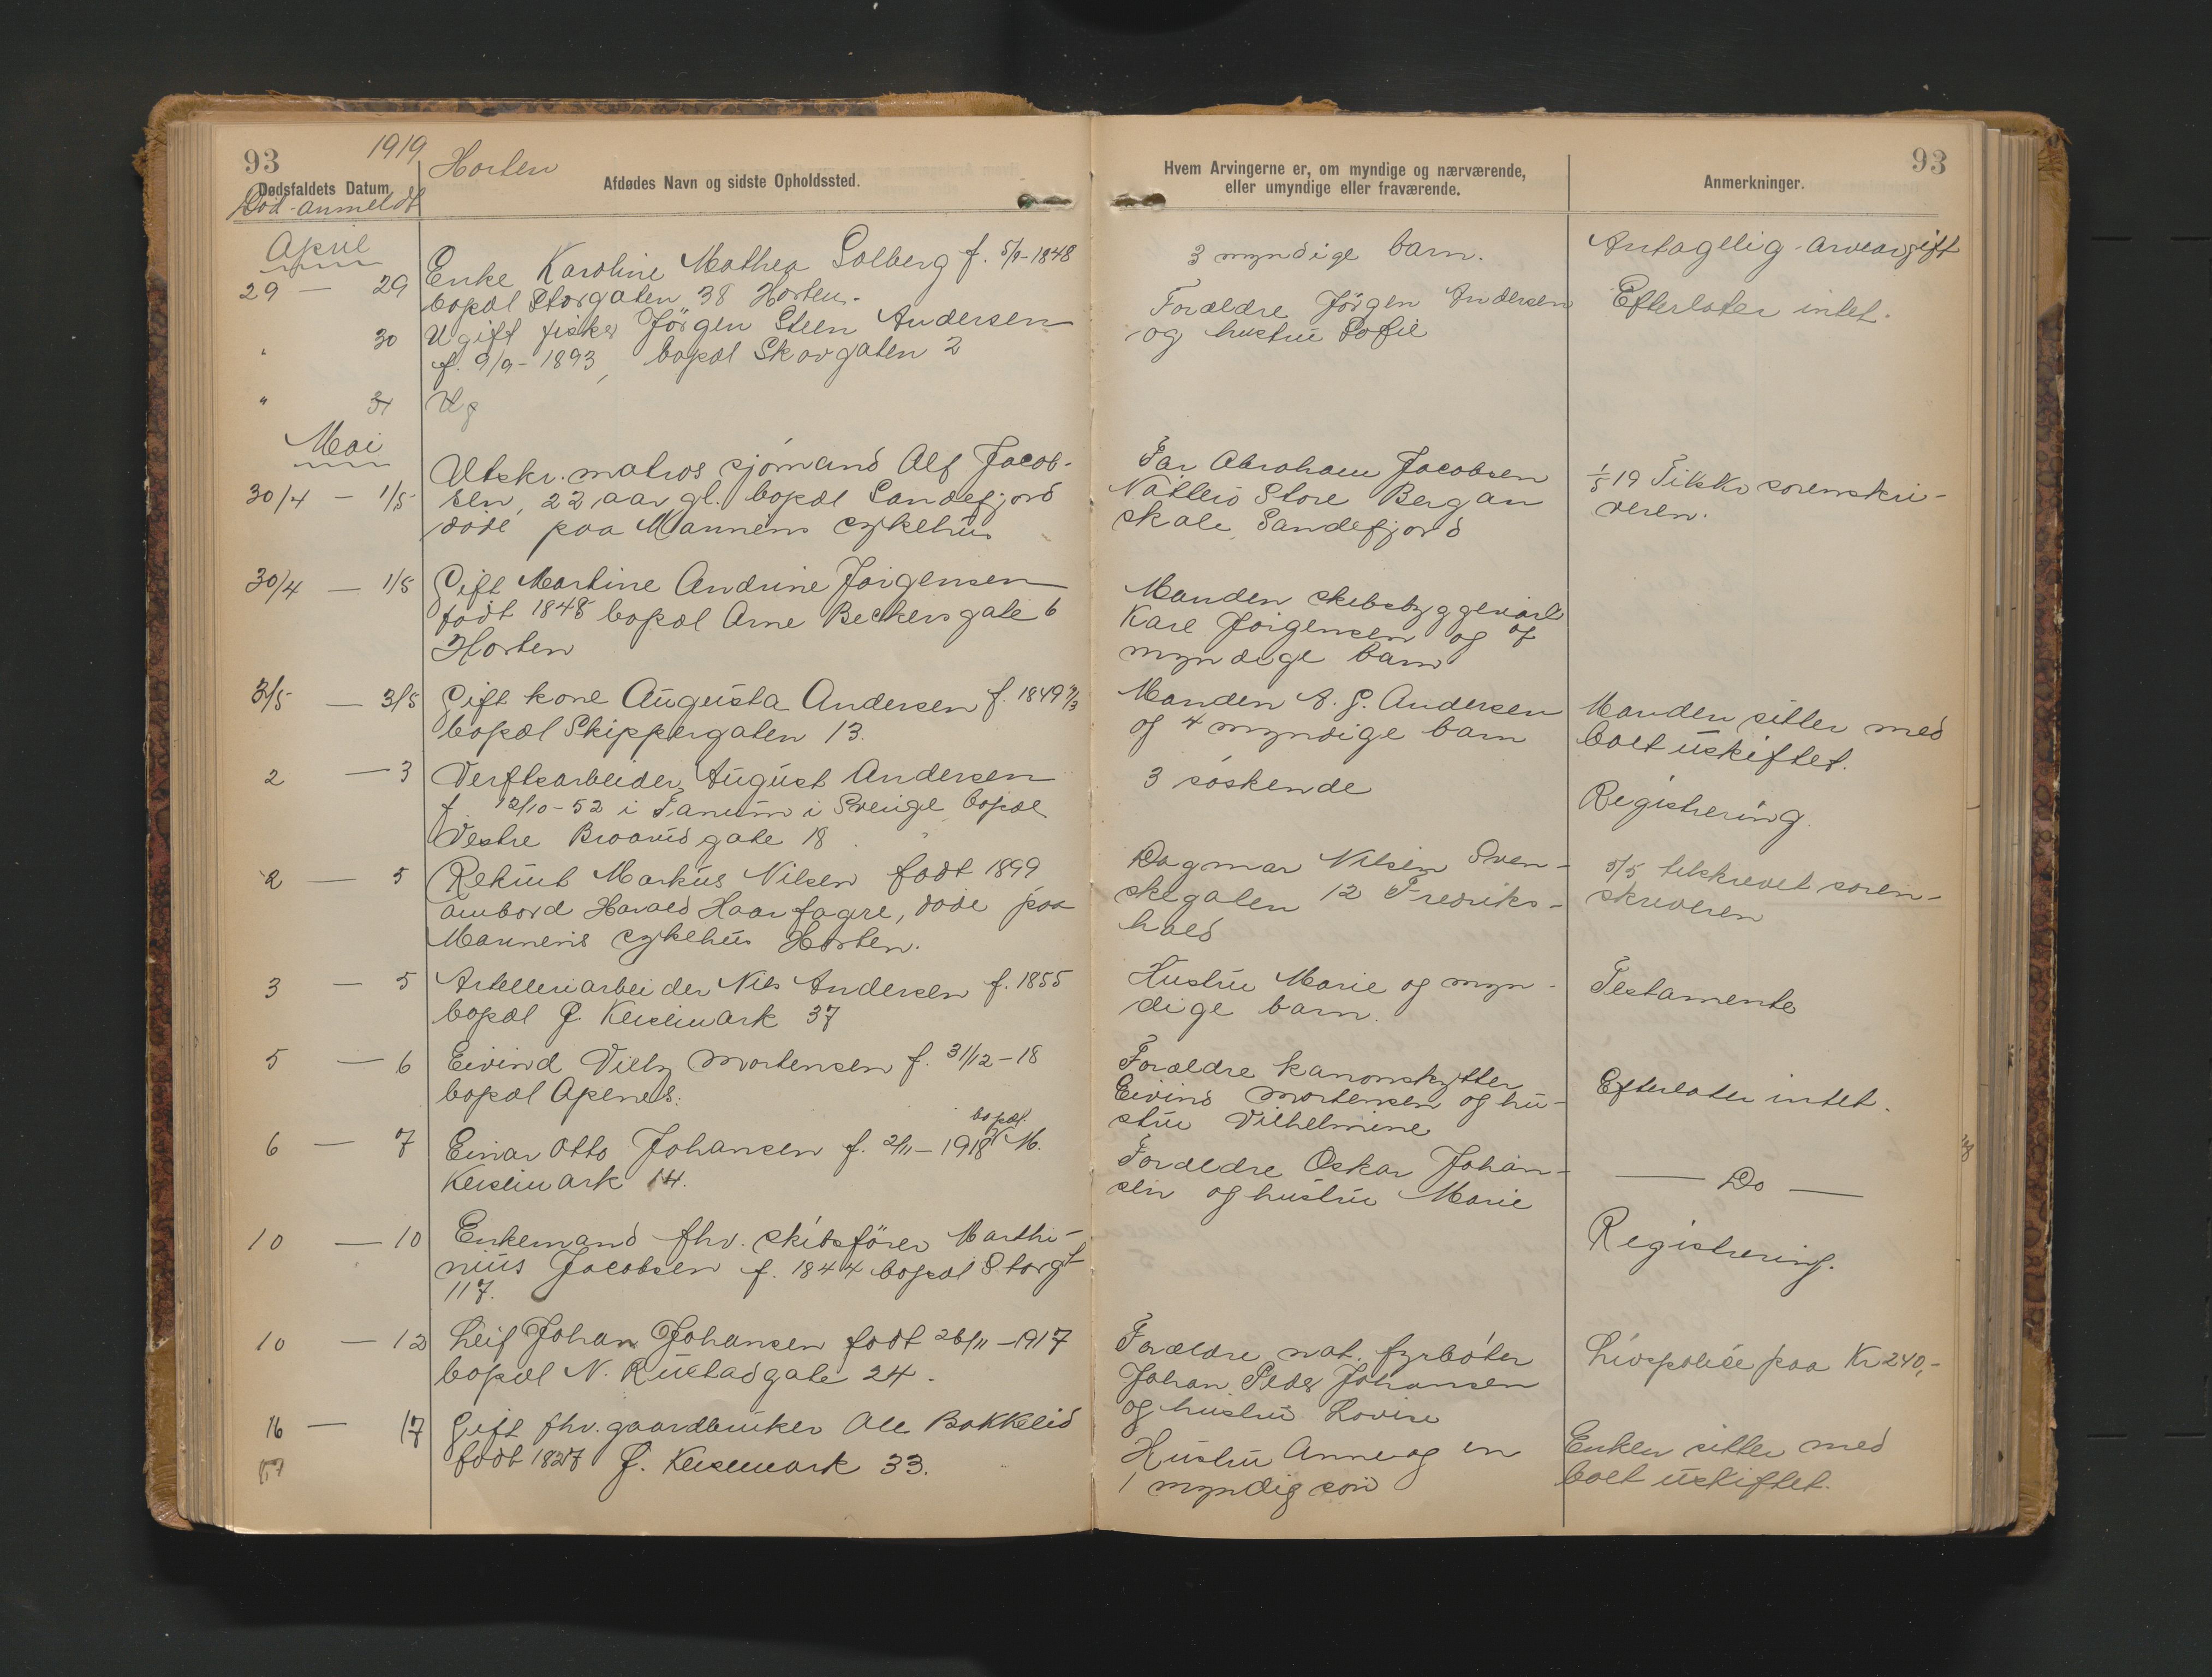 93
1919
Horten
Dødsfaldets Datum.
Død - anmeldt
Afdødes Navn og sidste Opholdssted.
Hvem Arvingerne er, om myndige og nærværende,
eller umyndige eller fraværende.
Anmerkninger.
93
April
29 — 29 Enke Karoline Mathea Solberg f. 5/9-1848
bopæl Storgaten 38 Horten.
3 myndige barn.
Antagelig arveavgift
" 30 Ugift fisker Jörgen Steen Andersen
f. 9/9-1893, bopæl Skovgaten 2
Forældre Jörgen Andersen
og hustru Sofie
Efterlater intet.
" 31 Ug
Mai
30/4 — 1/5 Utskr. matros sjömand Alf Jacob-
sen, 22 aar gl. bopæl Sandefjord
döde paa Marinens sykehus
Far Abraham Jacobsen
Store Bergan
skole Sandefjord
1/5 19 Tilskr. sorenskri-
veren.
30/4 — 1/5 Gift Martine Andrine Jörgensen
födt 1848 bopæl Arne Beckersgate 6
Horten
Manden skibsbygger
Karl Jörgensen og
myndige barn
3/5 — 3/5 Gift kone Augusta Andersen f. 1849
bopæl Skippergaten 13.
Manden A. G. Andersen
og 4 myndige barn
Manden sitter med
boet uskiftet.
2 — 3 Verftsarbeider August Andersen
f. 12/10-52 i Tanum i Sverige bopæl
Vestre Braarudgate 18
3 söskende
Registrering.
2 — 5 Rekrut Markus Nilsen födt 1899
ambord Harald Haarfagre, döde paa
Marinens sykehus Horten.
Dagmar Nilsen Sven-
skegaten 12 Fredriks-
hald
5/5 tilskrevet soren-
skriveren
3 — 5 Artilleriarbeider Nils Andersen f. 1855
bopæl Ø. Keisemark 37
Hustru Marie og myn-
dige barn.
Testamente
5 — 6 Eivind Villy Mortensen f. 31/12-18
bopæl Apenes.
Forældre kanonskytter
Eivind Mortensen og hu-
stru Vilhelmine
Efterlater intet.
6 — 7 Einar Otto Johansen f. 2/11-1918 bopæl. M.
Keisemark 14.
Forældre Oskar Johan-
sen og hustru Marie
— Do —
10 — 10 Enkemand fhv. skibsförer Marthi-
nius Jacobsen f. 1844 bopæl Storgt
117.
Registrering.
10 — 12 Leif Johan Johansen födt 26/11-1917
bopæl N. Rustadgate 24.
Forældre mat. fyrböter
Johan Peder Johansen
og hustru Lovise
Livspolice paa Kr 240,-
16 — 17 Gift fhv. gaardbruker Ole Bakkelid
födt 1827 Ø. Keisemark 33.
Hustru Anne og en
1 myndig sön
Enken sitter med
boet uskiftet.